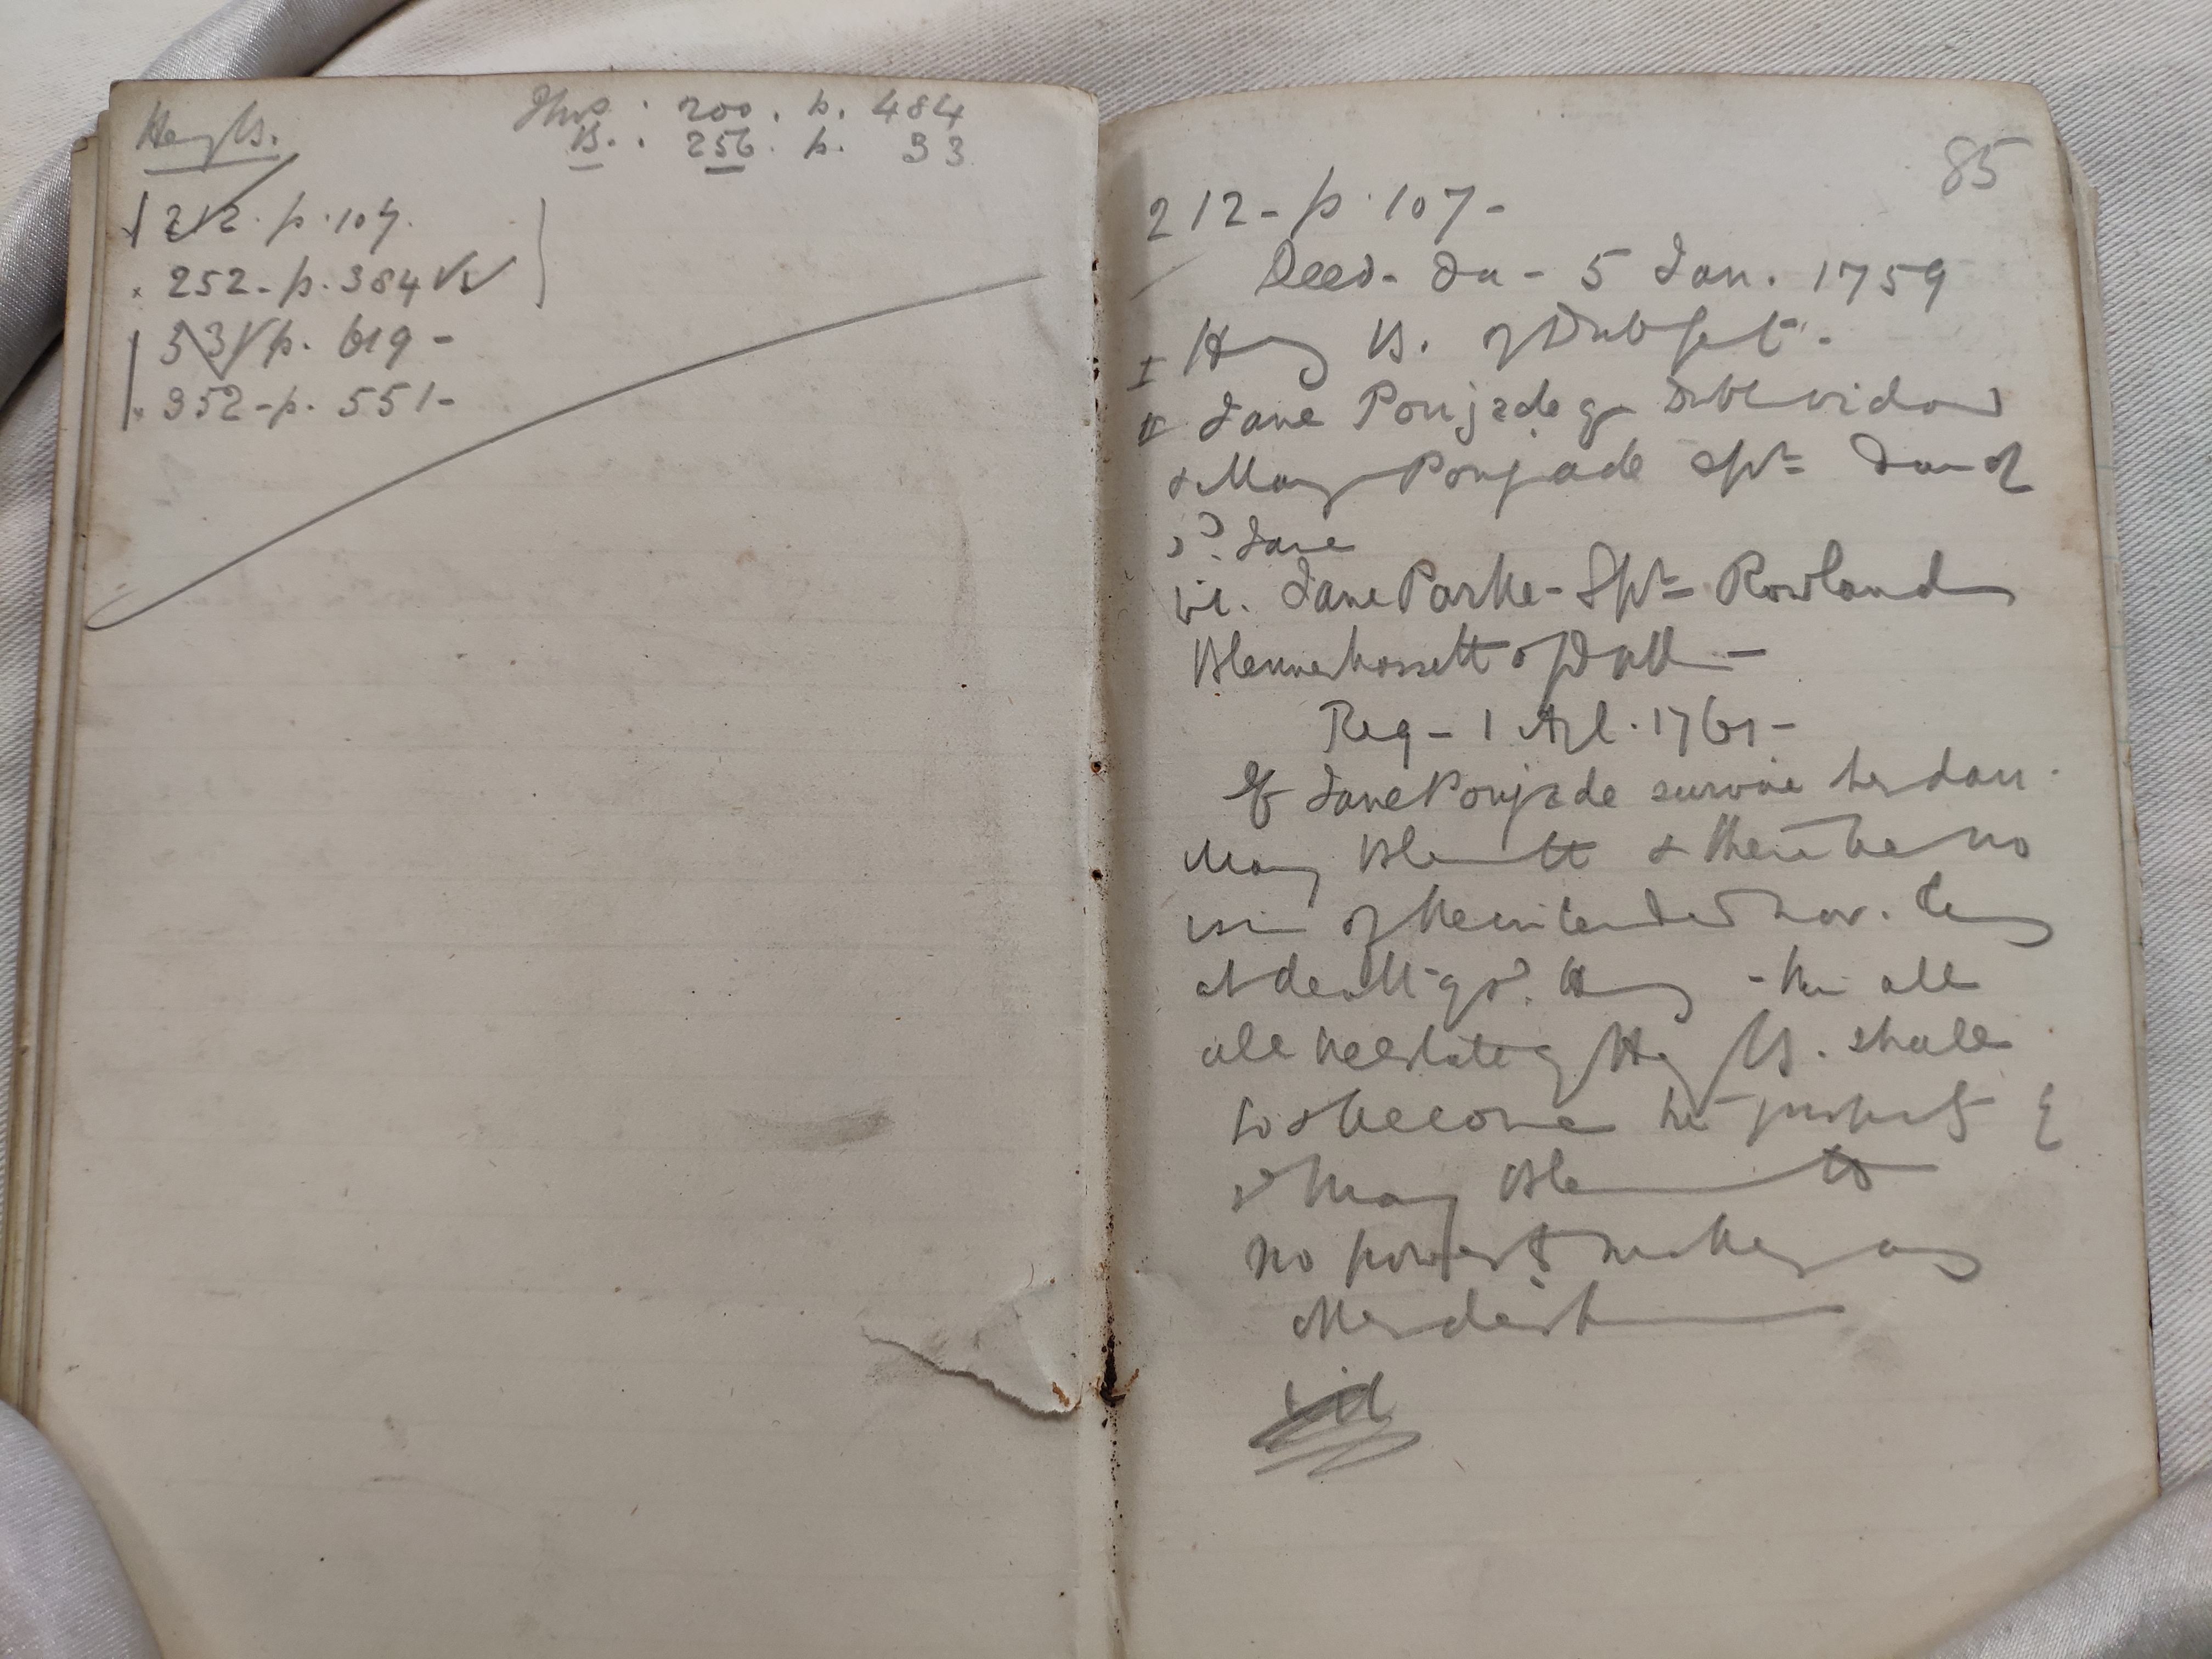 Hen/y B.
Thos : 200 . p. 484
B. : 256. p. 33
212. p. 107.
x 252 - p. 384
331 p. 619 -
x 352 - p. 551 -
85
212 - p. 107 -
Deed - da - 5 Jan. 1759
I Hy B. of Dub gent.
II Jane Poujade of Dub widow
& Mary Poujade Spr dau of
sd. Jane
wi. Jane Parke - Spr Rowland
Blennerhassett of Dub -
Reg - 1 Apl. 1761 -
If Jane Poujade survive her dau.
Mary Bl---tt & there be no
issue of the intended mar. living
at death of sd. Hy - then all
all the estate of Hy B. shall
go & become her property &
sd Mary Bl---tt
no power to make any